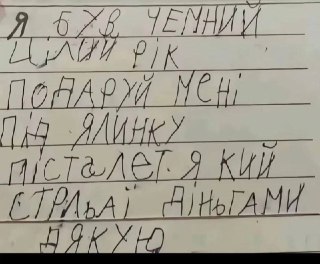 Я БУВ ЧЕМНИЙ
ЦІЛИЙ РІК
ПОДАРУЙ МЕНІ
ПІД ЯЛИНКУ
ПІСТАЛЕТ. Я КИЙ
СТРЛЬАЇ ДІНЬГАМИ
ДЯКУЮ